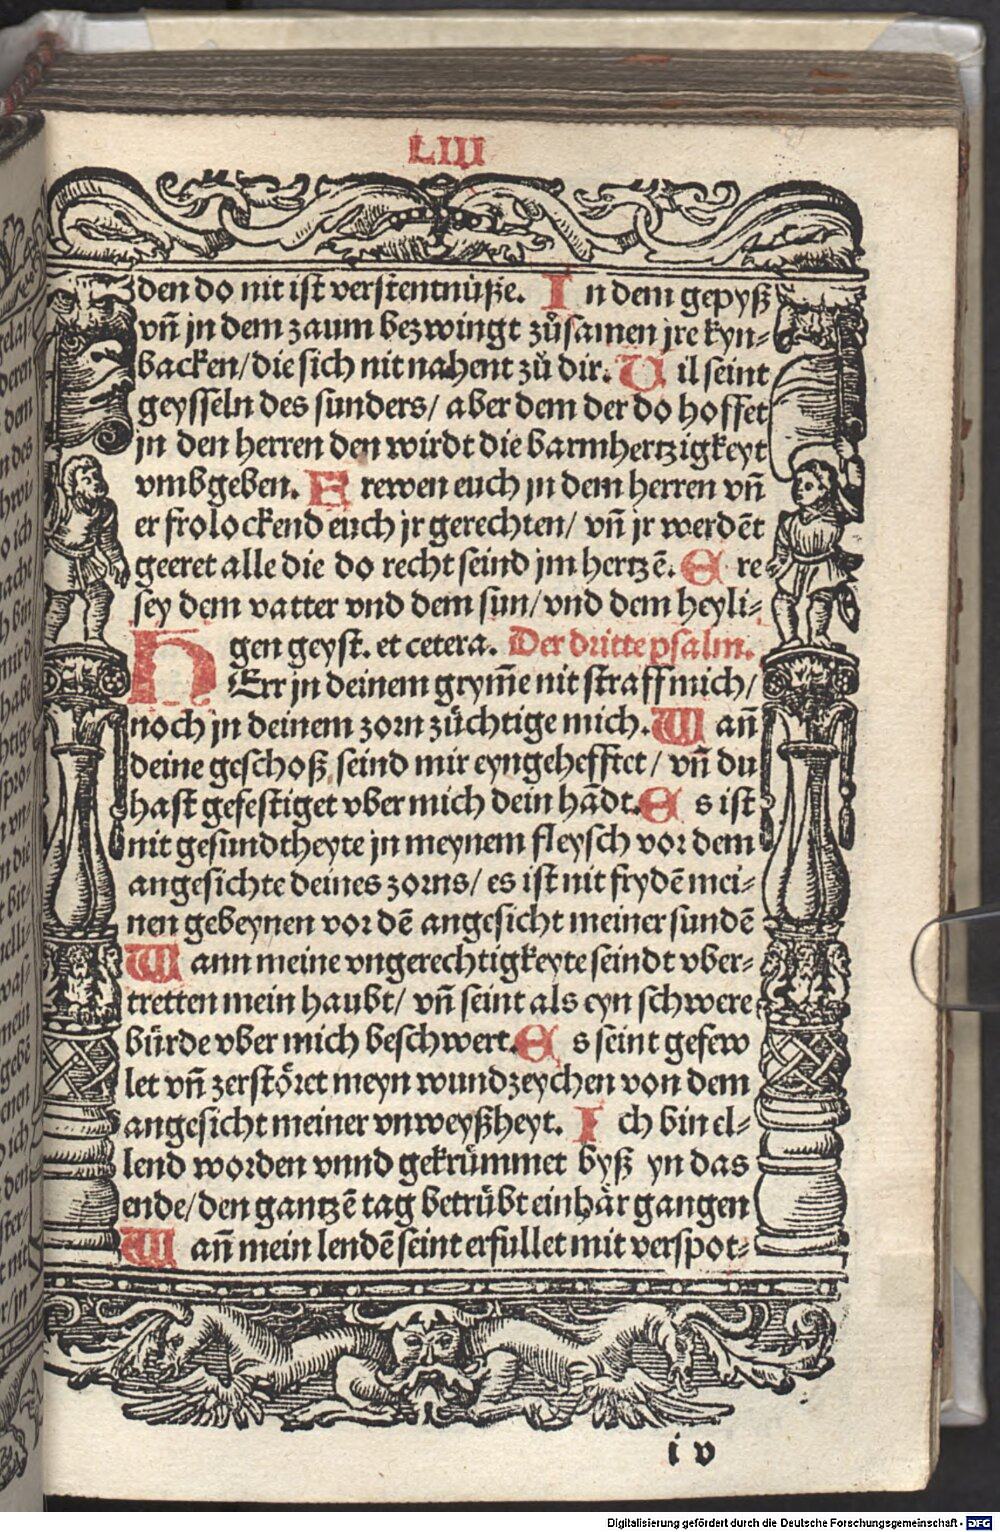 LIII
den do nit ist verstentnüße. In dem gepyß
vñ jn dem zaum bezwingt zůsamen jre kyn⸗
backen/die sich nit nahent zů dir. Vil seint
geysseln des sunders/ aber dem der do hoffet
jn den herren den wirdt die barmhertzigkeyt
vmbgeben. Erewen euch jn dem herren vñ
er frolockend euch jr gerechten/ vñ jr werdēt
geeret alle die do recht seind jm hertzē. Ere
sey dem vatter vnd dem sun/vnd dem heyli⸗
gen geyst. et cetera. Der dritte psalm.
HErr jn deinem grym̄e nit straff mich/
noch jn deinem zorn züchtige mich. Wañ
deine geschoß seind mir eyngehefftet/ vñ du
hast gefestiget vber mich dein hādt. Es ist
nit gesundtheyte jn meynem fleysch vor dem
angesichte deines zorns/ es ist nit frydē mei⸗
nen gebeynen vor dē angesicht meiner sundē
Wann meine vngerechtigkeyte seindt vber⸗
tretten mein haubt/ vñ seint als eyn schwere
bürde vber mich beschwert. Es seint gefew
let vñ zerstöret meyn wundzeychen von dem
angesicht meiner vnweyßheyt. Ich bin el⸗
lend worden vnnd gekrümmet byß yn das
ende/den gantzē tag betrübt einhär gangen
Wañ mein lendē seint erfullet mit verspot⸗
i v
Digitalisierung gefördert durch die Deutsche Forschungsgemeinschaft - DFG